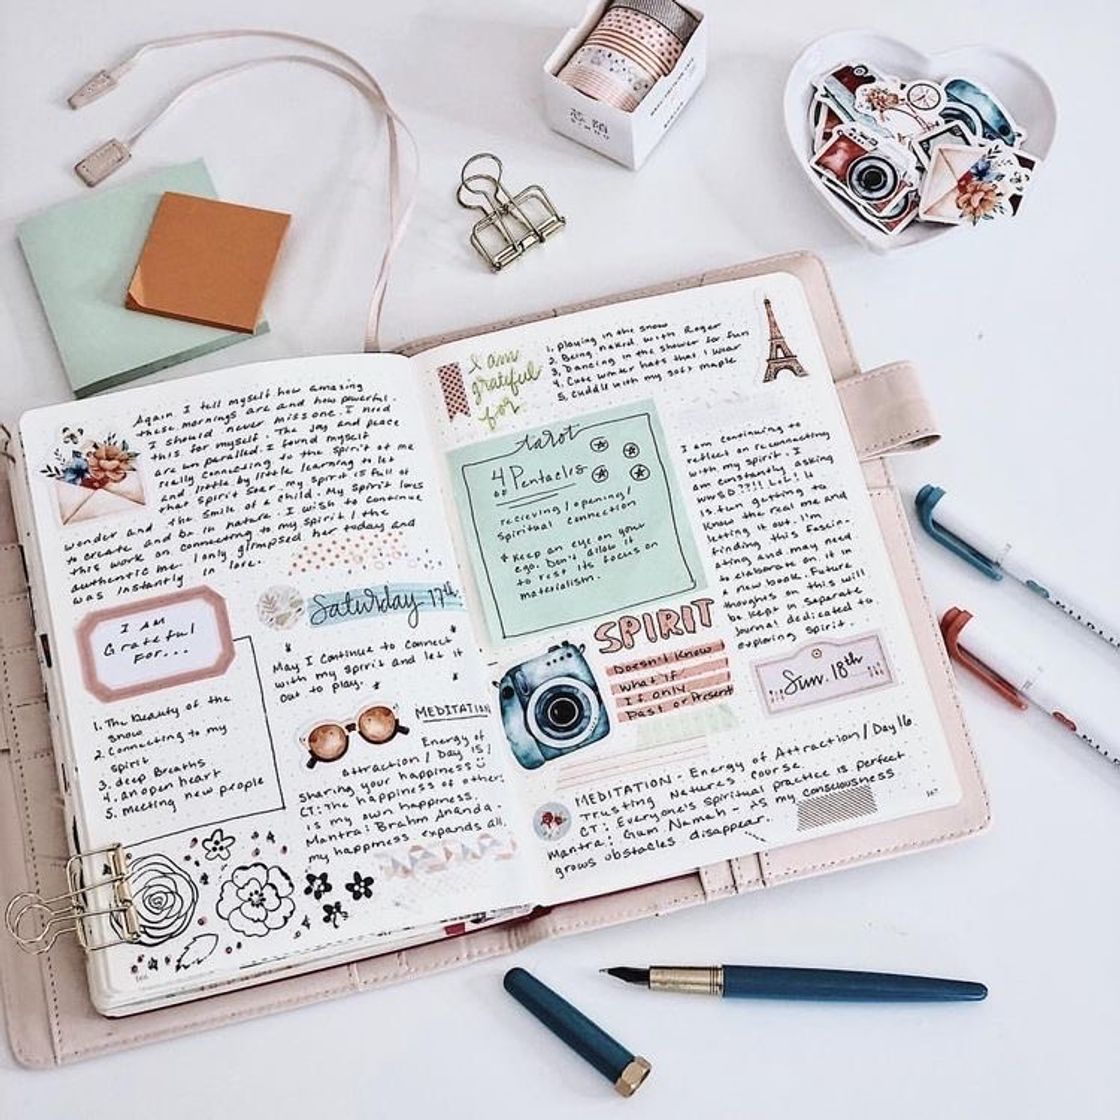 Again I tell myself how amazing
these mornings are and how powerful.
I should never miss one. I need
this for myself. The joy and peace
are un paralled. I found myself
really connecting to the spirit of me
and little by little learning to let
that spirit soar. my spirit is full of
wonder and the smile of a child. My Spirit loves
to create and be in nature. I wish to continue
this work on connecting to my Spirit / the
authentic me. I only glimpsed her today and
was instantly in love.
I AM
Grateful
FOR...
1. The beauty of the
snow
2 Connecting to my
spirit
3. deep Breaths
4. an open heart
5. meeting new people
Saturday 17th
May I continue to Connect
with my spirit and let it
out to play.
MEDITATION
Energy of
attraction / Day 15 /
Sharing your happiness
CT: The happiness of others
is my own happiness.
Mantra: Brahm Ananda.
my happiness expands all.
I am
grateful
for
1. playing in the snow
2. Being naked with Roger
3. Dancing in the shower for fun
4. Cute winter hats that I wear
5. cuddle with my soft maple
tarot
4 of Pentacles
recieving / opening /
spiritual connection
* Keep an eye on your
ego. Don't allow it
to rest its focus on
materialism.
I am continuing to
reflect on reconnecting
with my spirit. I
am constantly asking
WWSD???! LOL! It
is fun getting to
Know the real me and
letting it out. I'm
finding this fascin-
ating and may need
to elaborate on it in
a new book. Future
thoughts on this will
be kept in separate
Journal dedicated to
exploring Spirit.
SPIRIT
Doesn't Know
What if
If only
Past or Present
Sun. 18th
MEDITATION - Energy of Attraction / Day 16
Trusting Natures' Course.
CT: Everyone's Spiritual practice is perfect
Mantra: Gum Namah - As my consciousness
grows obstacles disappear.
167